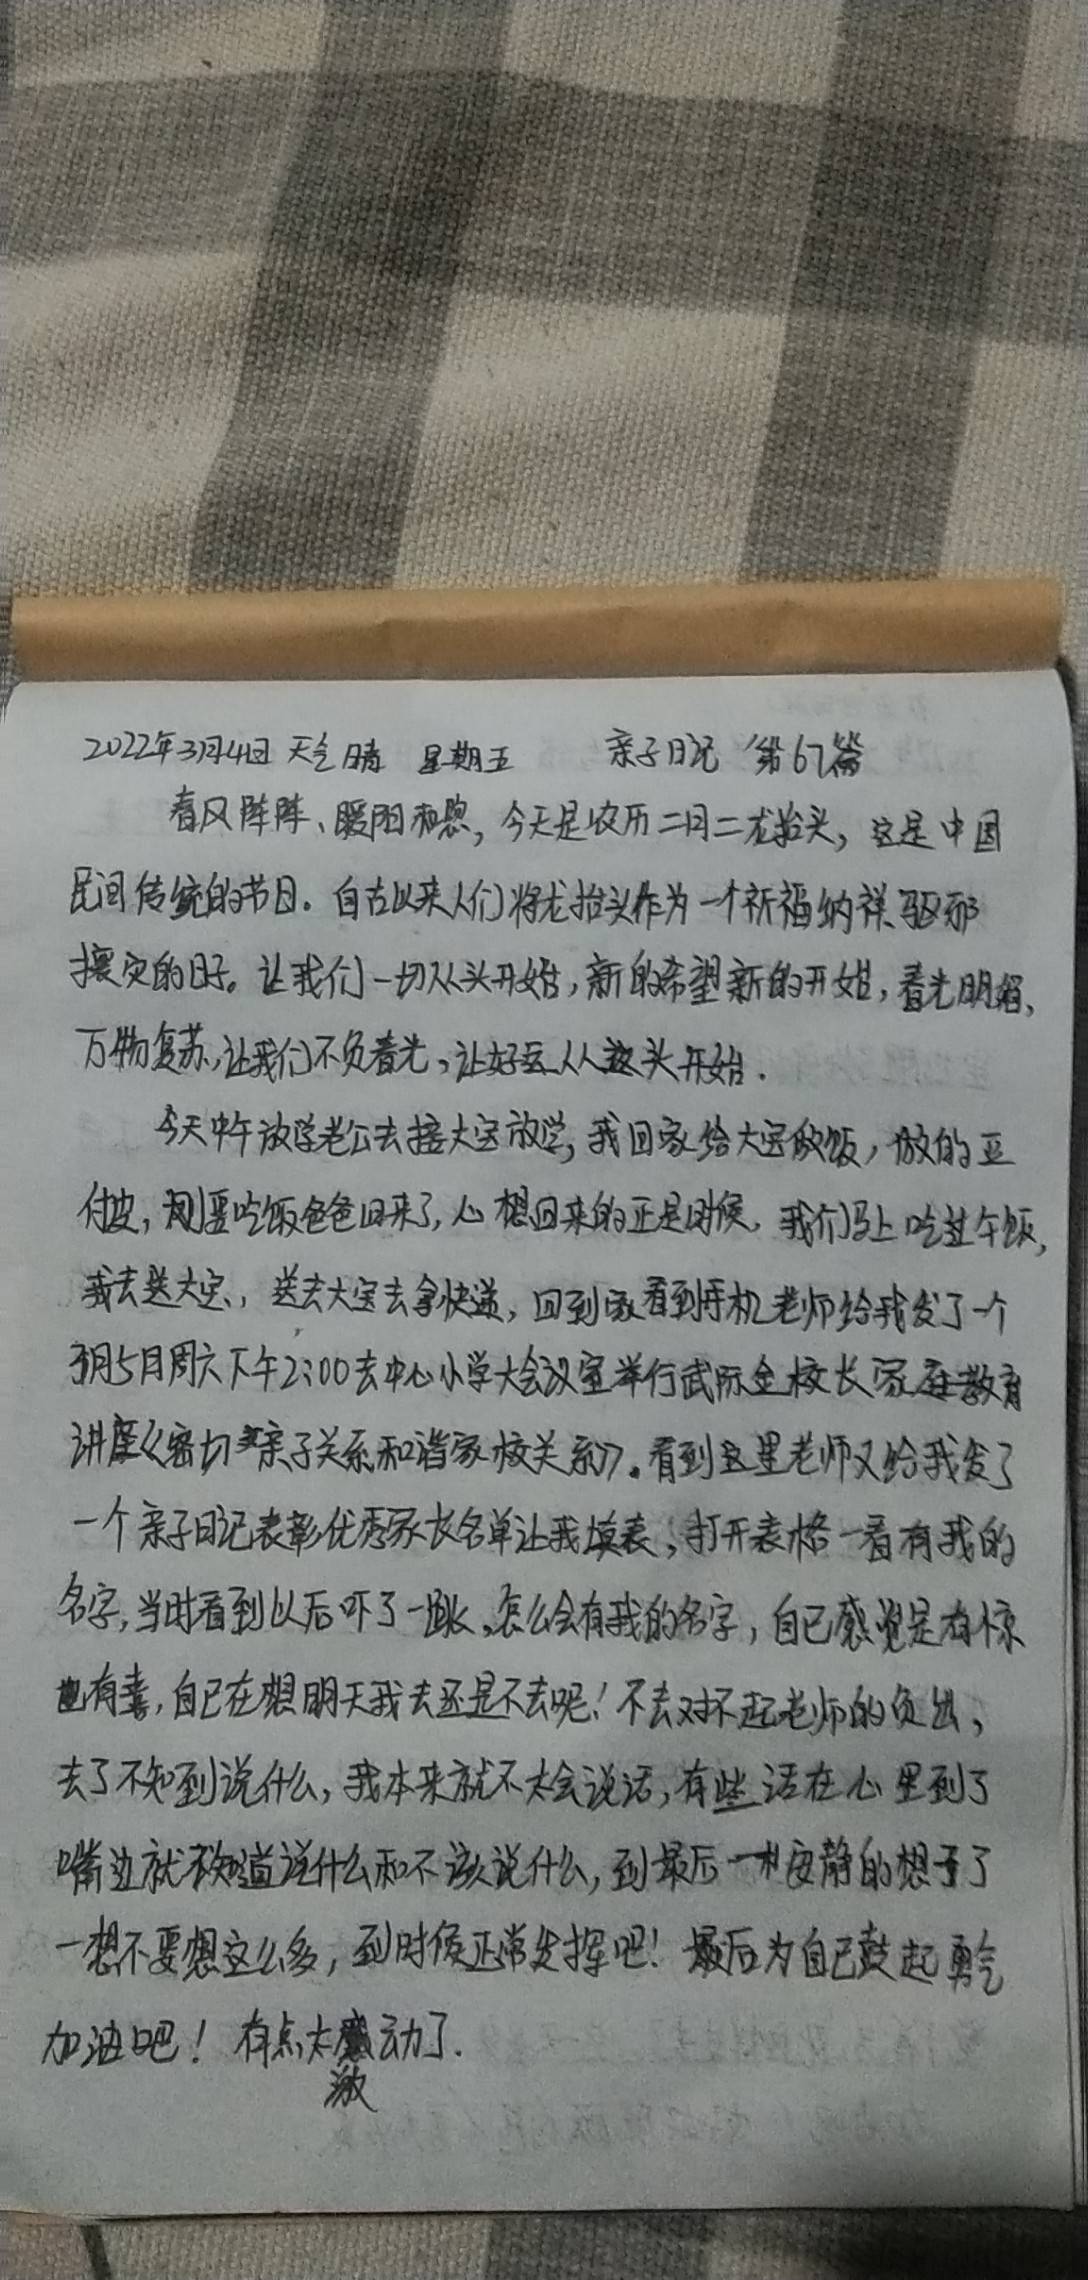 2022年3月4日 天气晴 星期五 亲子日记 第67篇
春风阵阵、暖阳和煦,今天是农历二月二龙抬头,这是中国
民间传统的节日。自古以来人们将龙抬头作为一个祈福纳祥、驱邪
攘灾的日子。让我们一切从头开始,新的希望新的开始,春光明媚、
万物复苏,让我们不负春光,让好运从这头开始.
今天中午放学老公去接大宝放学,我回家给大宝做饭,做的豆
付皮,刚要吃饭爸爸回来了,心想回来的正是时候,我们马上吃过午饭,
我去送大宝,送去大宝去拿快递,回到家看到手机老师给我发了一个
3月5日周六下午2:00去中心小学大会议室举行武际金校长家庭教育
讲座《密切亲子关系和谐家校关系》。看到这里老师又给我发了
一个亲子日记表彰优秀家长名单让我填表,打开表格一看有我的
名字,当时看到以后吓了一跳,怎么会有我的名字,自己感觉是有惊
也有喜,自己在想明天我去还是不去呢!不去对不起老师的负出,
去了不知到说什么,我本来就不太会说话,有些话在心里到了
嘴边就不知道说什么和不该说什么,到最后一个人安静的想了
一想不要想这么多,到时候正常发挥吧!最后为自己鼓起勇气
加油吧!有点太激动了.